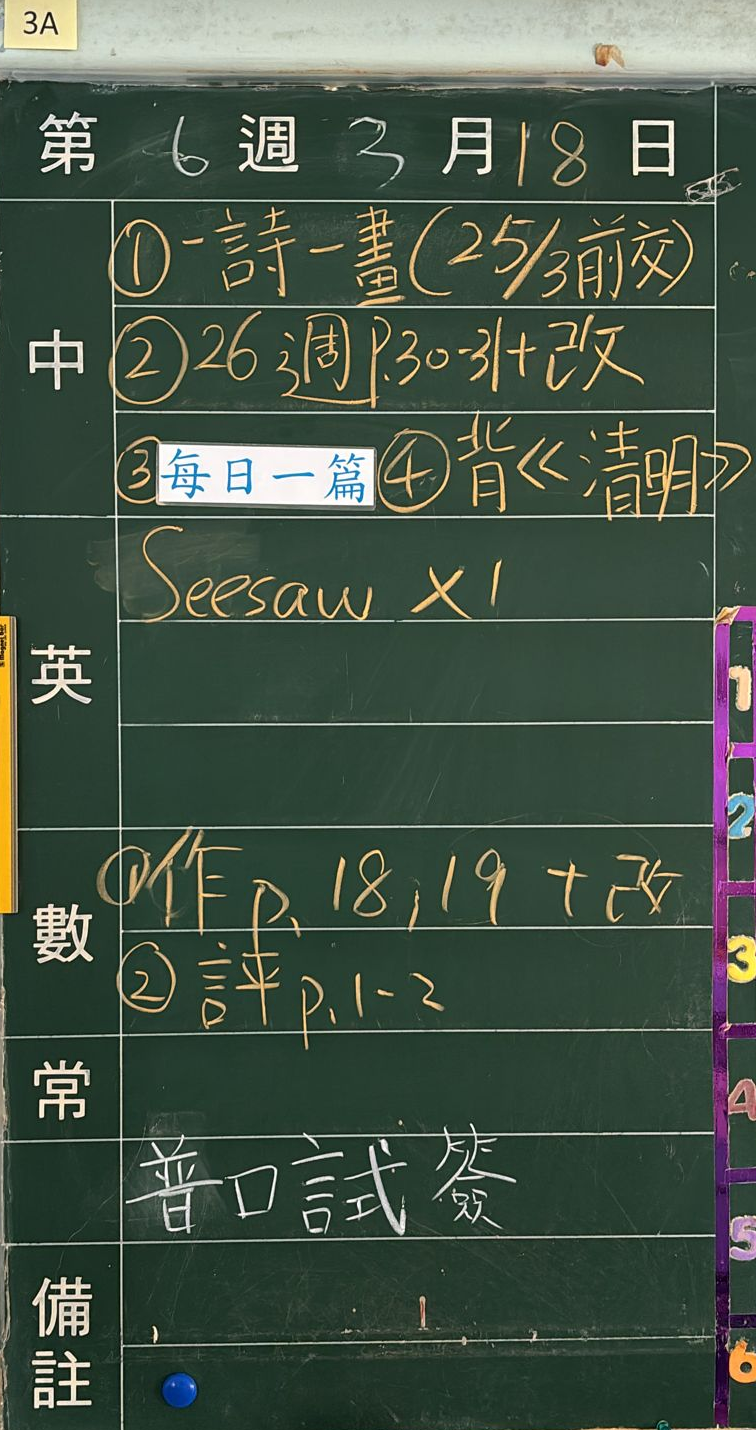 3A
第 6 週 3 月 18 日
中
①一詩一畫(25/3前交)
②26週P.30-31+改
③每日一篇 ④背《清明》
英
Seesaw x1
數
①作 p. 18,19 + 改
②評 p.1-2
常
普口試簽
備註
1
2
3
4
5
6